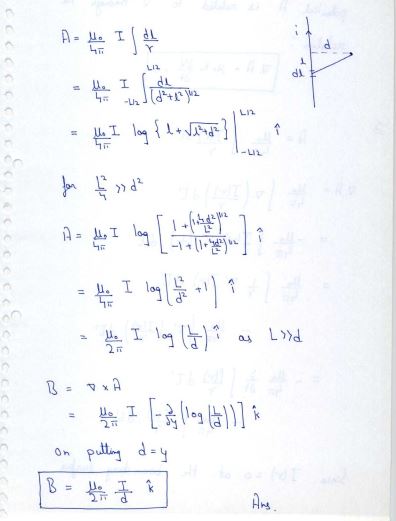 A = μ₀/4π I ∫ dl/r
i
d
l
dl
= μ₀/4π I ∫_{-L/2}^{L/2} dl/(d²+l²)^{1/2}
= μ₀/4π I log { l + √(l²+d²) } |_{-L/2}^{L/2} î
for L²/4 >> d²
A = μ₀/4π I log [ (1 + (1+4d²/L²)^{1/2}) / (-1 + (1+4d²/L²)^{1/2}) ] î
= μ₀/4π I log (L²/d² + 1) î
= μ₀/2π I log (L/d) î as L>>d
B = ∇ × A
= μ₀/2π I [ -∂/∂y (log (L/d)) ] k̂
on putting d = y
B = μ₀/2π I/d k̂
Ans.